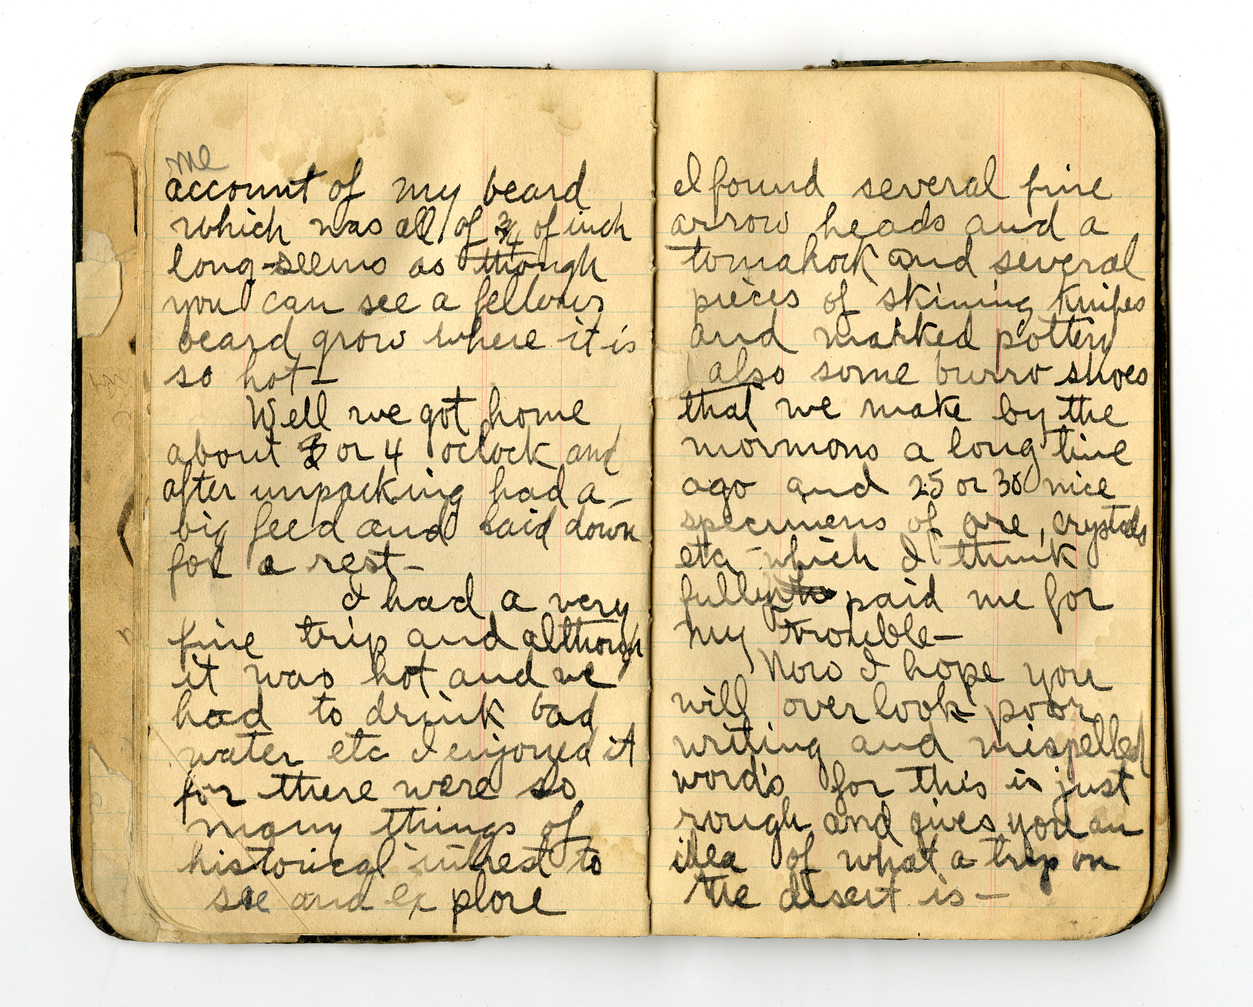 me
account of my beard
which was all of 3/4 of inch
long-seems as though
you can see a fellows
beard grow where it is
so hot-
Well we got home
about 3 or 4 oclock and
after unpacking had a-
big feed and laid down
for a rest-
I had a very
fine trip and although
it was hot and we
had to drink bad
water etc I enjoyed it
for there were so
many things of
historical intrest to
see and explore
I found several fine
arrow heads and a
tomahock and several
pieces of skining knifes
and marked pottery
also some burro shoes
that we make by the
mormons a long time
ago and 25 or 30 nice
specimens of ore, crystals
etc which I think
fully paid me for
my trouble-
Now I hope you
will over look poor
writing and mispelled
words for this is just
rough and gives you an
idea of what a trip on
the desert is-